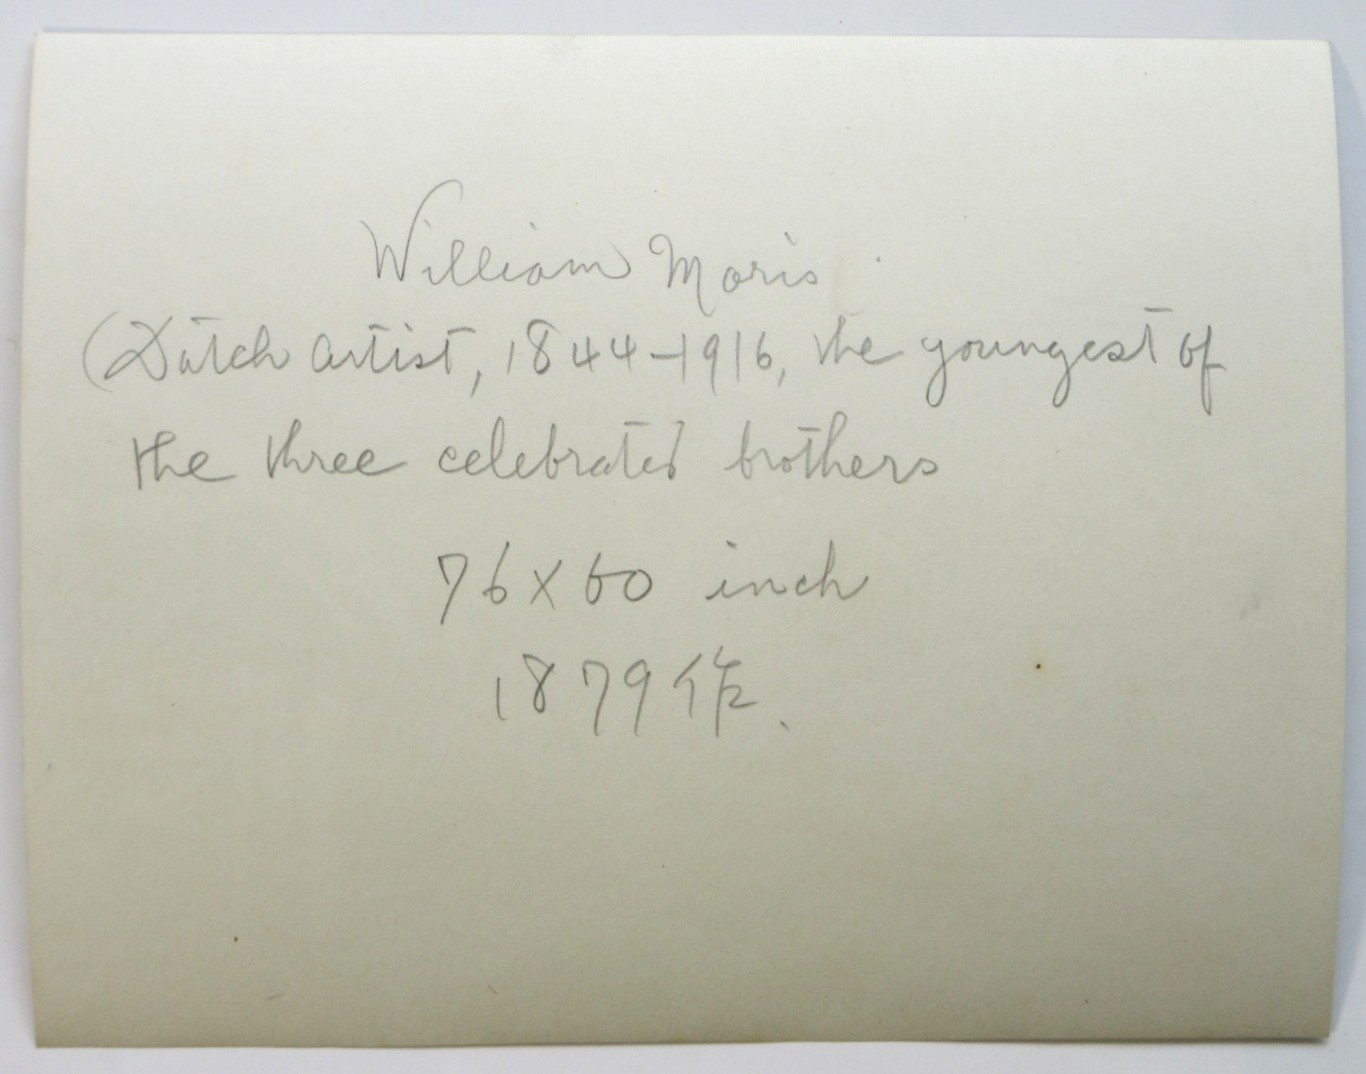 William Maris
(Dutch artist, 1844-1916, the youngest of
the three celebrated brothers
76×60 inch
1879作.